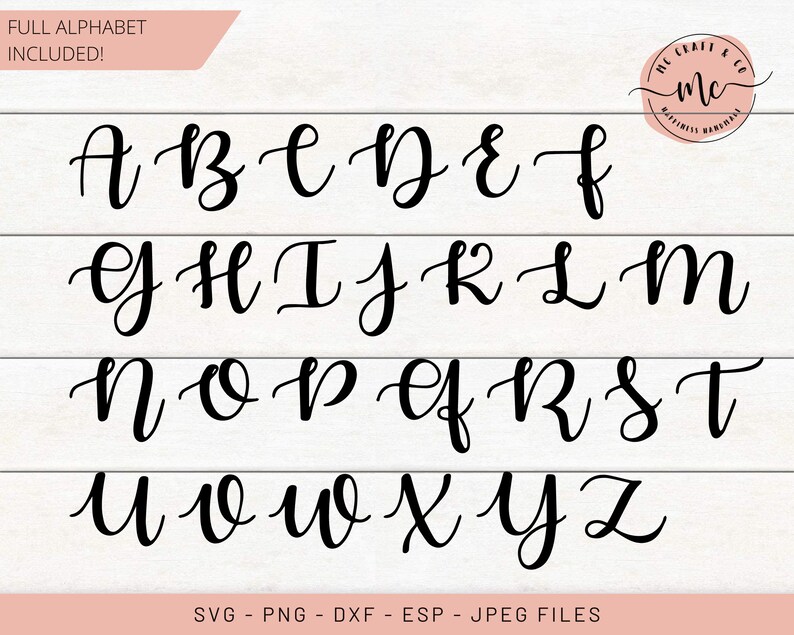 FULL ALPHABET
INCLUDED!
MC CRAFT & CO
Mc
HAPPINESS HANDMADE
A B C D E F
G H I J K L M
N O P Q R S T
U V W X Y Z
SVG - PNG - DXF - ESP - JPEG FILES